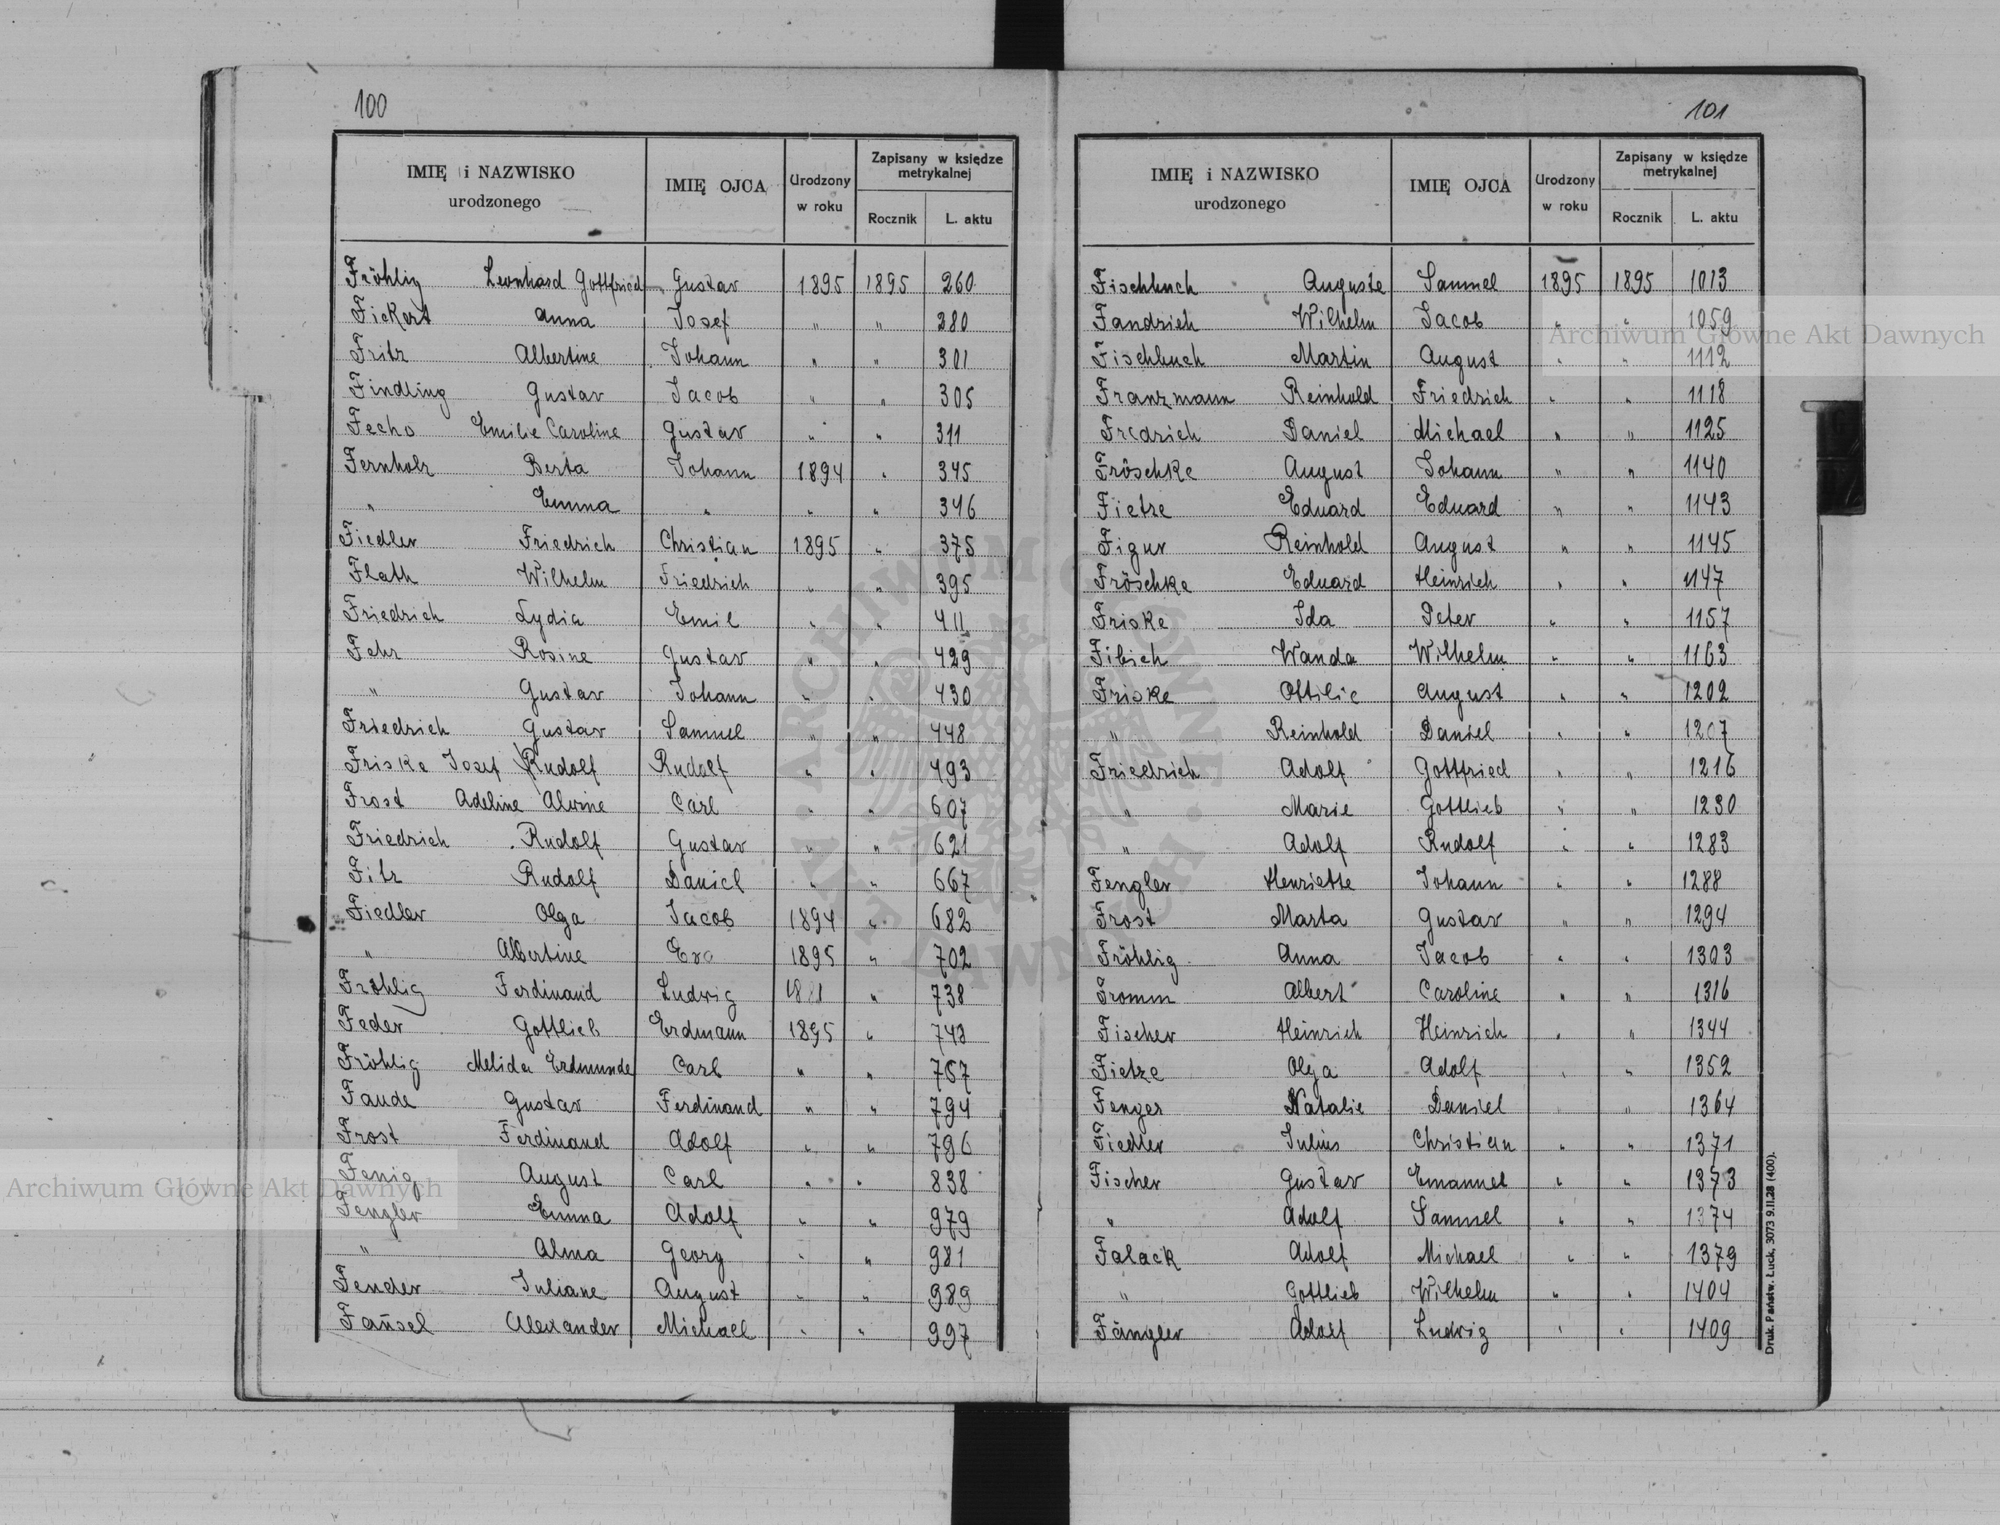 100
IMIĘ i NAZWISKO urodzonego IMIĘ OJCA Urodzony w roku Zapisany w księdze metrykalnej Rocznik L. aktu
Fröhlig Leonhard Gottfried Gustav 1895 1895 260
Fickert Anna Josef " " 280
Fritz Albertine Johann " " 301
Findling Gustav Jacob " " 305
Fecho Emilie Caroline Gustav " " 311
Fernholz Berta Johann 1894 " 345
" Emma " " " 346
Fiedler Friedrich Christian 1895 " 375
Flath Wilhelm Friedrich " " 395
Friedrich Lydia Emil " " 411
Fehr Rosine Gustav " " 429
" Gustav Johann " " 430
Friedrich Gustav Samuel " " 448
Friske Josef Rudolf Rudolf " " 493
Frost Adeline Alwine Carl " " 607
Friedrich Rudolf Gustav " " 621
Fitz Rudolf Daniel " " 667
Fiedler Olga Jacob 1894 " 682
" Albertine Eva 1895 " 702
Fröhlig Ferdinand Ludwig " 738
Feder Gottlieb Erdmann 1895 " 743
Fröhlig Melida Erdmunde Carl " " 757
Faude Gustav Ferdinand " " 794
Frost Ferdinand Adolf " " 796
Fenig August Carl " " 838
Fengler Emma Adolf " " 979
" Alma Georg " " 981
Fender Juliane August " " 989
Faüsel Alexander Michael " " 997
101
IMIĘ i NAZWISKO urodzonego IMIĘ OJCA Urodzony w roku Zapisany w księdze metrykalnej Rocznik L. aktu
Fischbuch Auguste Samuel 1895 1895 1013
Fandrich Wilhelm Jacob " " 1059
Fischbuch Martin August " " 1112
Franzmann Reinhold Friedrich " " 1118
Fredrich Daniel Michael " " 1125
Fröschke August Johann " " 1140
Fietze Eduard Eduard " " 1143
Figur Reinhold August " " 1145
Fröschke Eduard Heinrich " " 1147
Friske Ida Peter " " 1157
Fibich Wanda Wilhelm " " 1163
Friske Ottilie August " " 1202
" Reinhold Daniel " " 1207
Friedrich Adolf Gottfried " " 1216
" Marie Gottlieb " " 1230
" Adolf Rudolf " " 1283
Fengler Henriette Johann " " 1288
Frost Marta Gustav " " 1294
Fröhlig Anna Jacob " " 1303
Fromm Albert Caroline " " 1316
Fischer Heinrich Heinrich " " 1344
Fietze Olga Adolf " " 1352
Fenger Natalie Daniel " " 1364
Fiedler Julius Christian " " 1371
Fischer Gustav Emanuel " " 1373
" Adolf Samuel " " 1374
Falack Adolf Michael " " 1379
" Gottlieb Wilhelm " " 1404
Fängler Adolf Ludwig " " 1409
Druk. Państw. Łuck, 3073 9.II.28 (400).
Archiwum Główne Akt Dawnych
Archiwum Główne Akt Dawnych
ARCHIWUM GŁÓWNE AKT DAWNYCH